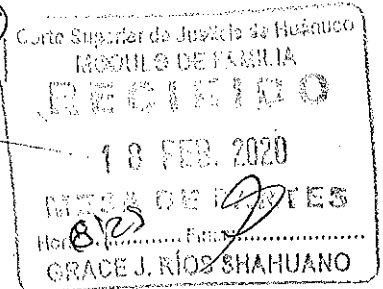 Corte Superior de Justicia de Huánuco
MODULO DE FAMILIA
RECIBIDO
18 FEB. 2020
MESA DE PARTES
Hora 8:23 Firma
GRACE J. RÍOS SHAHUANO